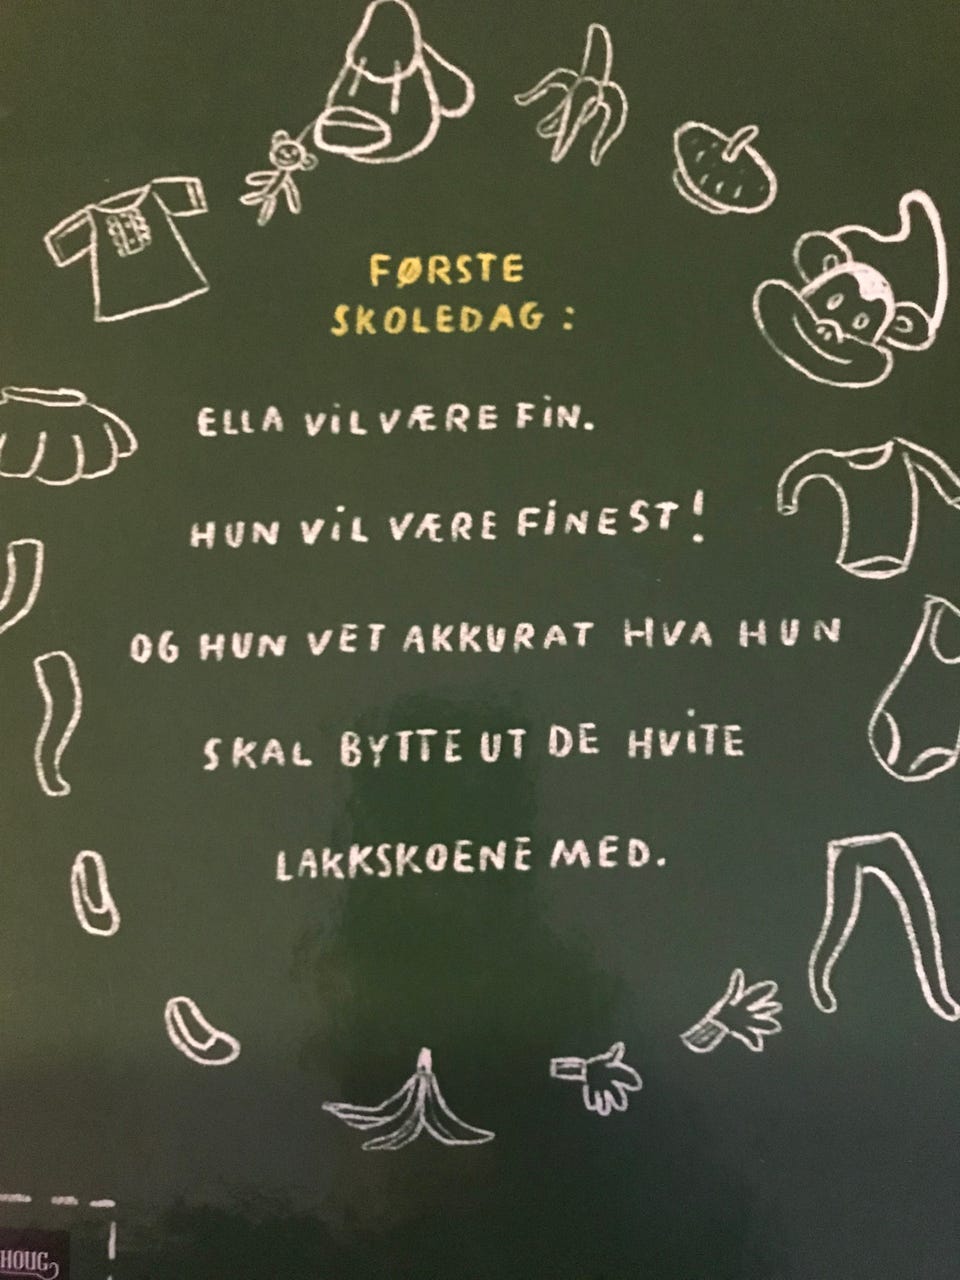 FØRSTE
SKOLEDAG :
ELLA ViL VÆRE FiN.
HUN ViL VÆRE FiNEST!
OG HUN VET AKKURAT HVA HUN
SKAL BYTTE UT DE HViTE
LAKKSKOENE MED.
HOUG